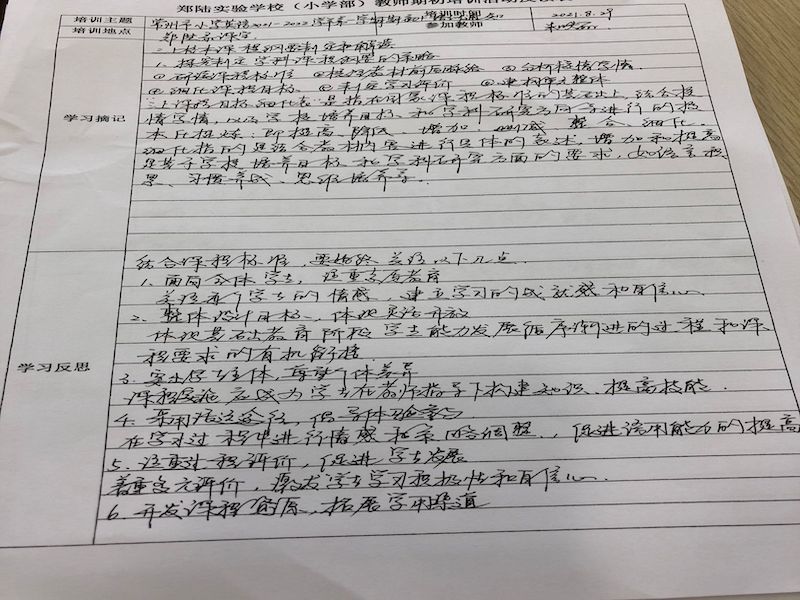 郑陆实验学校（小学部）教师期初培训活动反
培训主题 常州市小学英语2021-2022学年第一学期期初 培训时间 2021.8.29
培训地点 郑陆 参加教师
学习摘记
二、校本课程纲要制定和解读
1. 探究制定学科课程纲要的策略
①研读课程标准 ②梳理教材前后脉络 ③分析校情学情
④细化课程目标 ⑤制定学习评价 ⑥建构单元整体
三、课程目标细化表：是指在国家课程标准的基础上，结合校
情学情，以学校培养目标、和学科研究方向等进行的校
本化提炼，即提高、降低、增加、删减、整合、细化。
细化指的是结合教材内容进行具体的表述，增加和提高
是基于学校培养目标和学科研究方面的要求，如语言积
累、习惯养成、思维培养等.
学习反思
结合课程标准，要始终关注以下几点.
1. 面向全体学生，注重素质教育
关注每个学生的情感，建立学习的成就感和自信心.
2. 整体设计目标，体现灵活开放
体现基础教育阶段学生能力发展循序渐进的过程和课
程要求的有机衔接.
3. 突出学生主体，尊重个体差异
课程实施应成为学生在教师指导下构建知识、提高技能.
4. 采用活动途径，倡导体验参与
在学习过程中进行情感和策略调整，促进语用能力的提高
5. 注重过程评价，促进学生发展
着重多元评价，激发学生学习积极性和自信心.
6. 开发课程资源，拓展学用渠道